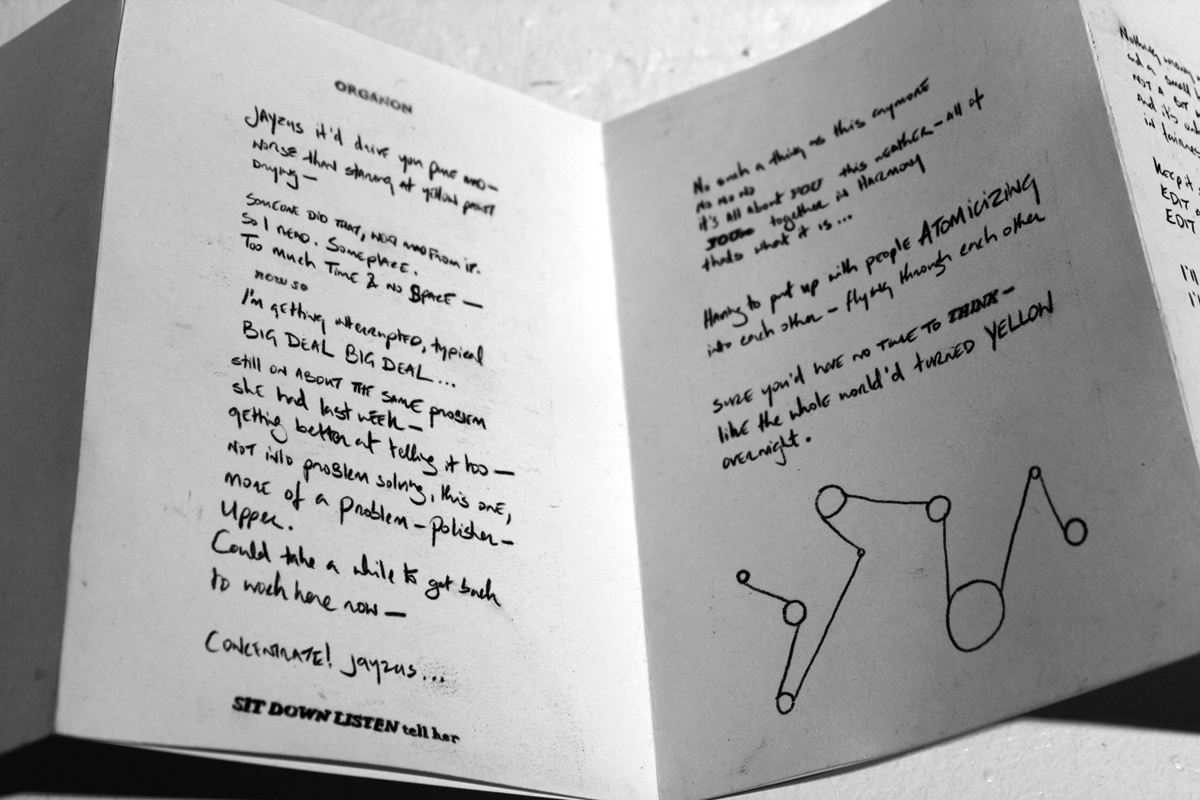 ORGANON
Jayzus it'd drive you pure mad—
worse than staring at yellow paint
Drying—
SOMEONE DID THAT, WENT MAD FROM IT.
So I READ. SOMEPLACE.
Too much Time & no Space —
now so
I'm getting interrupted, typical
BIG DEAL BIG DEAL...
still on ABOUT THE SAME problem
she had last week —
getting better at telling it too —
NOT into problem solving, this one,
more of a problem-polisher-
Upper.
Could take a while to get back
to work here now —
CONCENTRATE! Jayzus...
SIT DOWN LISTEN tell her
No such a thing as this anymore
No no no
it's all about YOU this weather - all of
together in HARMONY
thats what it is...
Having to put up with people ATOMICIZING
into each other - flying through each other
SURE you'd have no TIME TO THINK -
like the whole world'd turned YELLOW
overnight.
and a small
NOT A BIT
in fairness
Keep it
EDIT
EDIT
I'll